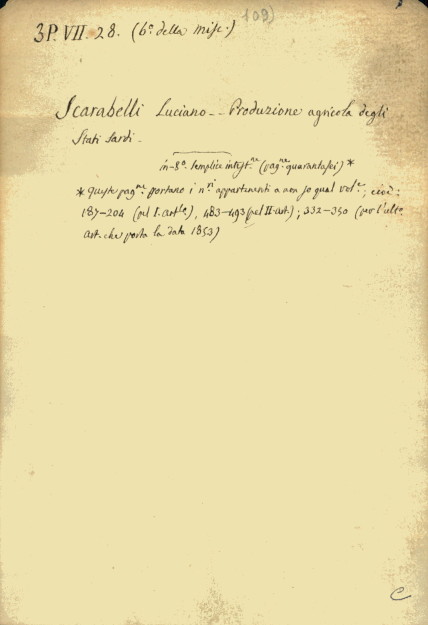 109)
3P. VII. 28. (6º della misc.)
Scarabelli Luciano -- Produzione agricola degli
Stati Sardi -
in-8º. semplice intestne. (pagne quarantasei) *
* Queste pagne. portano i nri appartenenti a non so qual vole., cioè:
187-204 (pel I. artlo.), 483-493 (pel II art.); 332-350 (per l'ulto.
art. che porta la data 1853)
C